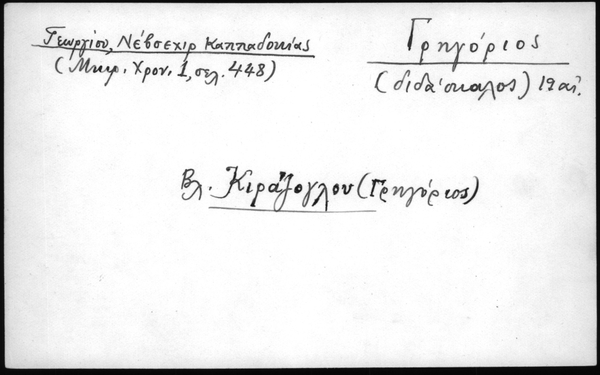 Γεωργίου, Νέβσεχιρ Καππαδοκίας
(Μικρ. Χρον. 1, σελ. 448)
Γρηγόριος
(διδάσκαλος) 19 αἰ.
Βλ. Κιράζογλου (Γρηγόριος)